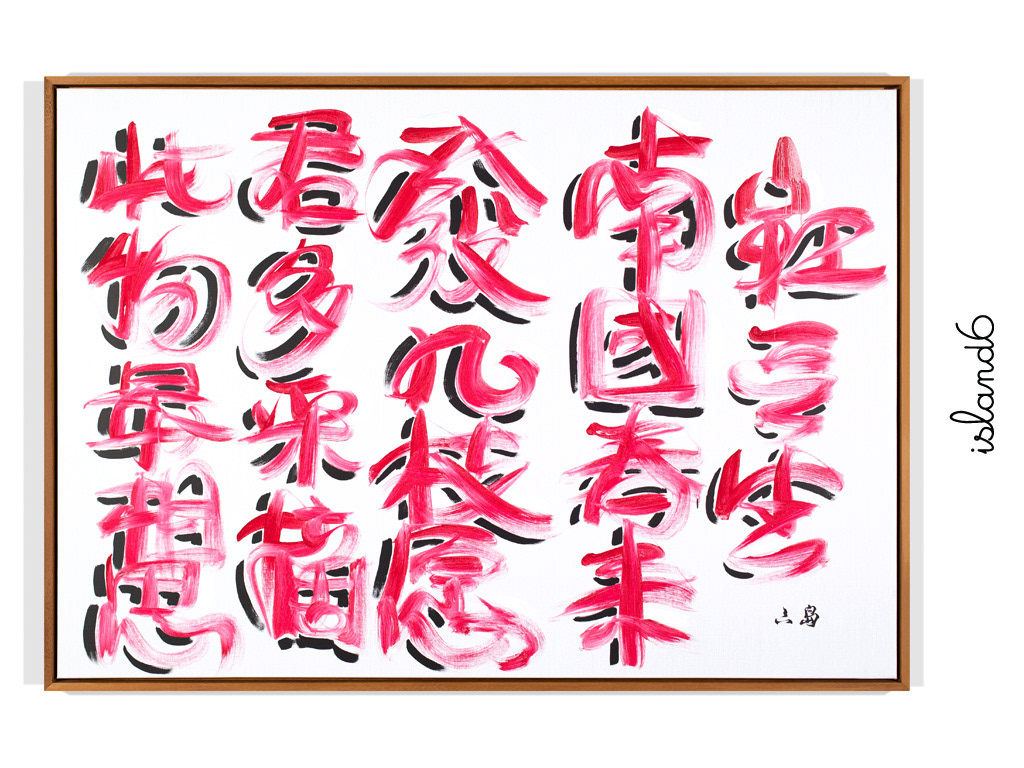 紅豆生
南國春来
發几枝愿
君多采
此物最相思
六島
island6